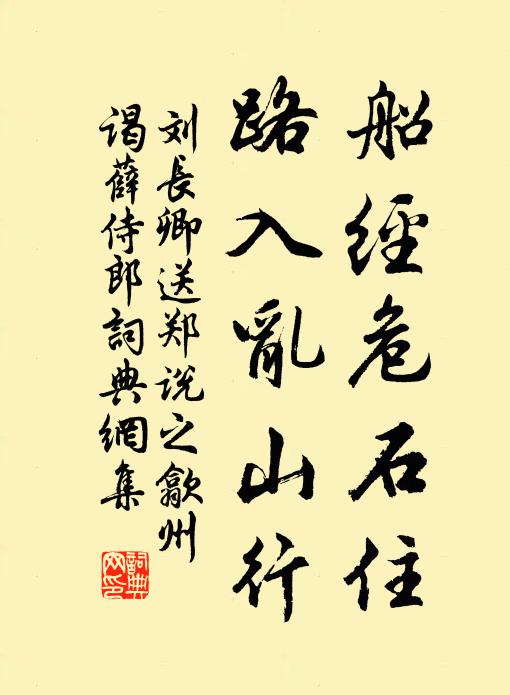 船經危石住
路入亂山行
刘長卿送郑说之歙州
谒薛侍郎詞典網集
詞典網印